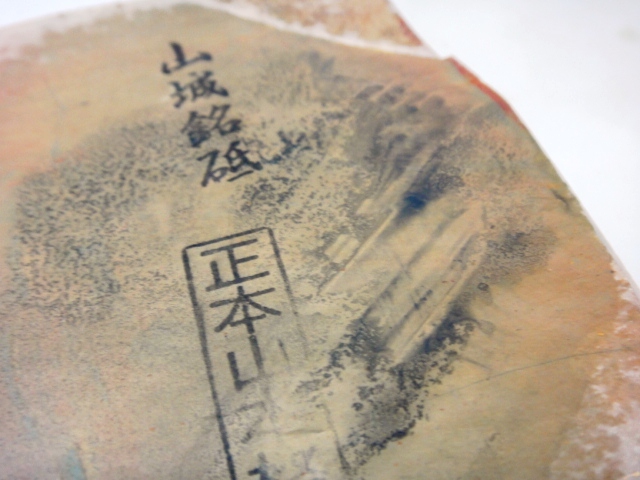 山城銘砥
正本山